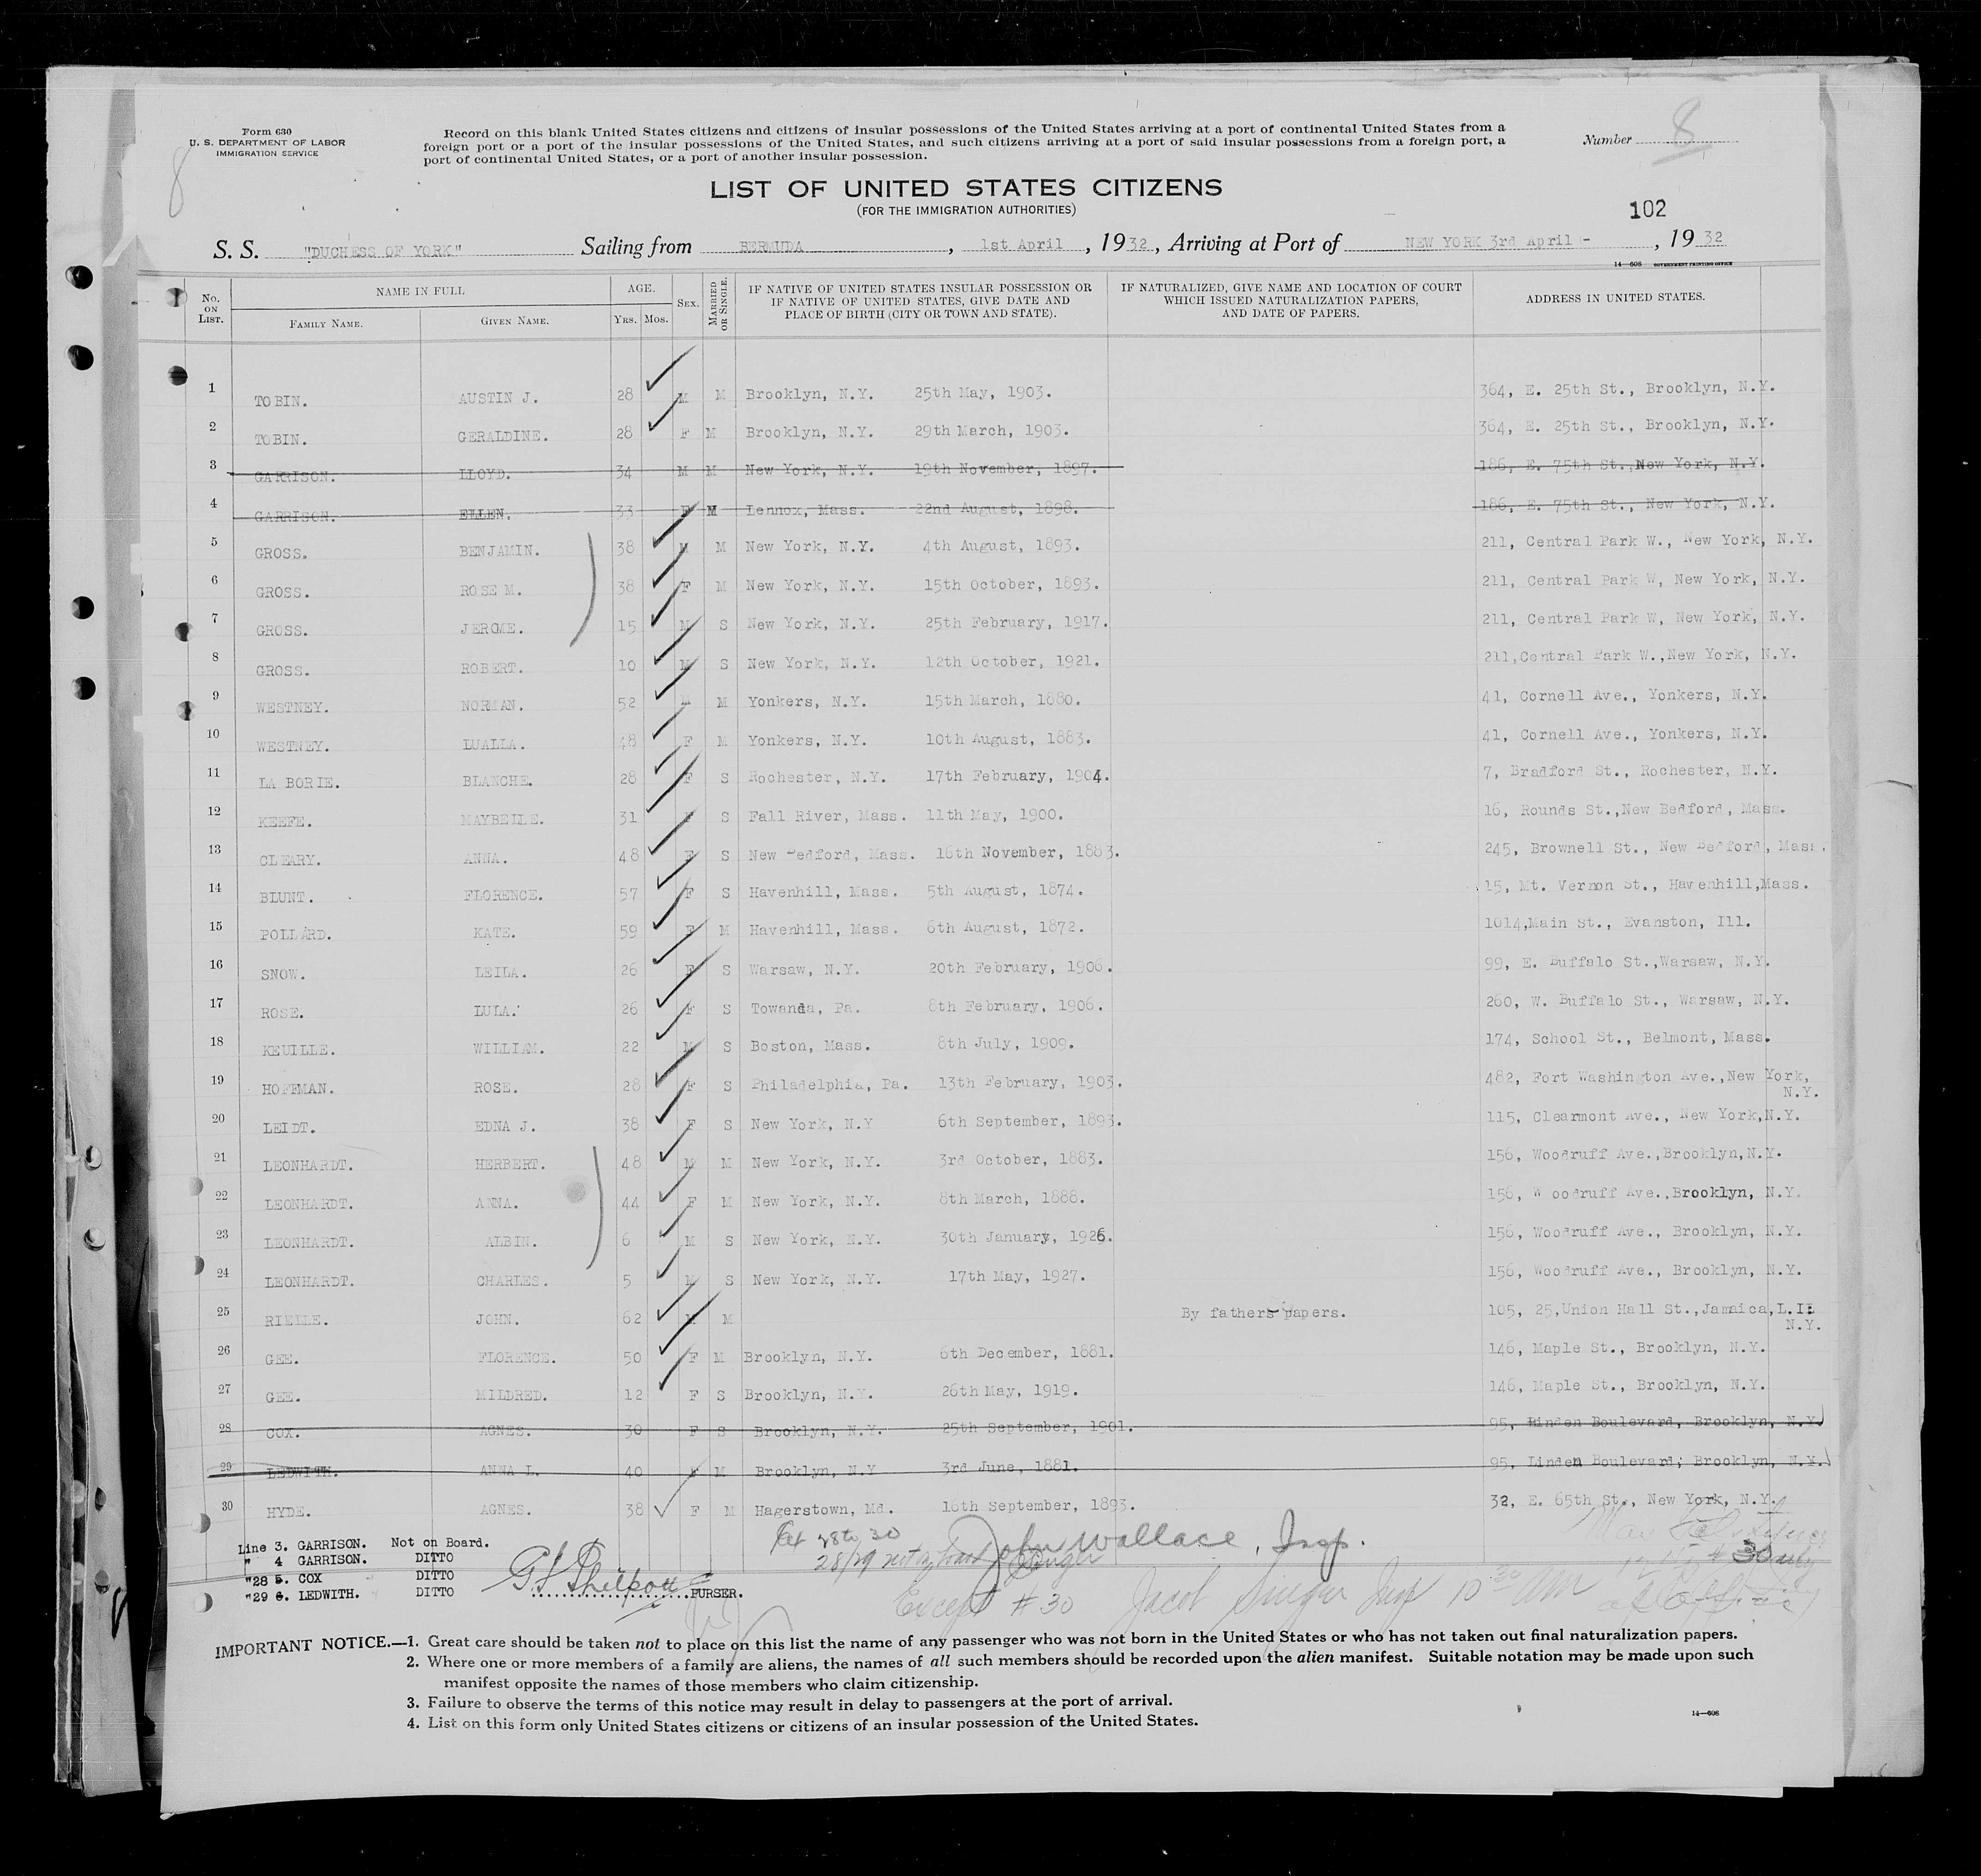 Form 630
U. S. DEPARTMENT OF LABOR
IMMIGRATION SERVICE
8
Record on this blank United States citizens and citizens of insular possessions of the United States arriving at a port of continental United States from a
foreign port or a port of the insular possessions of the United States, and such citizens arriving at a port of said insular possessions from a foreign port, a
port of continental United States, or a port of another insular possession.
Number 8
LIST OF UNITED STATES CITIZENS
(FOR THE IMMIGRATION AUTHORITIES)
102
S. S. "DUCHESS OF YORK" Sailing from BERMUDA, 1st April, 1932, Arriving at Port of NEW YORK 3rd April -, 1932
14-608 GOVERNMENT PRINTING OFFICE
No. ON LIST. NAME IN FULL FAMILY NAME. GIVEN NAME. AGE. YRS. MOS. SEX. MARRIED OR SINGLE. IF NATIVE OF UNITED STATES INSULAR POSSESSION OR IF NATIVE OF UNITED STATES, GIVE DATE AND PLACE OF BIRTH (CITY OR TOWN AND STATE). IF NATURALIZED, GIVE NAME AND LOCATION OF COURT WHICH ISSUED NATURALIZATION PAPERS, AND DATE OF PAPERS. ADDRESS IN UNITED STATES.
1 TOBIN. AUSTIN J. 28 M M Brooklyn, N.Y. 25th May, 1903. 364, E. 25th St., Brooklyn, N.Y.
2 TOBIN. GERALDINE. 28 F M Brooklyn, N.Y. 29th March, 1903. 364, E. 25th St., Brooklyn, N.Y.
3 GARRISON. LLOYD. 34 M M New York, N.Y. 19th November, 1897. 186, E. 75th St.,New York, N.Y.
4 GARRISON. ELLEN. 33 F M Lennox, Mass. 22nd August, 1898. 186, E. 75th St., New York, N.Y.
5 GROSS. BENJAMIN. 38 M M New York, N.Y. 4th August, 1893. 211, Central Park W., New York, N.Y.
6 GROSS. ROSE M. 38 F M New York, N.Y. 15th October, 1893. 211, Central Park W, New York, N.Y.
7 GROSS. JEROME. 15 M S New York, N.Y. 25th February, 1917. 211, Central Park W, New York, N.Y.
8 GROSS. ROBERT. 10 M S New York, N.Y. 12th October, 1921. 211,Central Park W.,New York, N.Y.
9 WESTNEY. NORMAN. 52 M M Yonkers, N.Y. 15th March, 1880. 41, Cornell Ave., Yonkers, N.Y.
10 WESTNEY. LUALLA. 48 F M Yonkers, N.Y. 10th August, 1883. 41, Cornell Ave., Yonkers, N.Y.
11 LA BORIE. BLANCHE. 28 F S Rochester, N.Y. 17th February, 1904. 7, Bradford St., Rochester, N.Y.
12 KEEFE. MAYBELLE. 31 F S Fall River, Mass. 11th May, 1900. 16, Rounds St.,New Bedford, Mass.
13 CLEARY. ANNA. 48 F S New Bedford, Mass. 16th November, 1883. 245, Brownell St., New Bedford, Mass.
14 BLUNT. FLORENCE. 57 F S Havenhill, Mass. 5th August, 1874. 15, Mt. Vernon St., Havenhill,Mass.
15 POLLARD. KATE. 59 F M Havenhill, Mass. 6th August, 1872. 1014,Main St., Evanston, Ill.
16 SNOW. LEILA. 26 F S Warsaw, N.Y. 20th February, 1906. 99, E. Buffalo St.,Warsaw, N.Y.
17 ROSE. LULA. 26 F S Towanda, Pa. 8th February, 1906. 260, W. Buffalo St., Warsaw, N.Y.
18 KEUILLE. WILLIAM. 22 M S Boston, Mass. 8th July, 1909. 174, School St., Belmont, Mass.
19 HOFFMAN. ROSE. 28 F S Philadelphia, Pa. 13th February, 1903. 482, Fort Washington Ave.,New York, N.Y.
20 LEIDT. EDNA J. 38 F S New York, N.Y 6th September, 1893. 115, Clearmont Ave., New York,N.Y.
21 LEONHARDT. HERBERT. 48 M M New York, N.Y. 3rd October, 1883. 156, Woodruff Ave.,Brooklyn,N.Y.
22 LEONHARDT. ANNA. 44 F M New York, N.Y. 8th March, 1888. 156, W oodruff Ave.,Brooklyn, N.Y.
23 LEONHARDT. ALBIN. 6 M S New York, N.Y. 30th January, 1926. 156, Woodruff Ave., Brooklyn, N.Y.
24 LEONHARDT. CHARLES. 5 M S New York, N.Y. 17th May, 1927. 156, Woodruff Ave., Brooklyn, N.Y.
25 RIELLE. JOHN. 62 M M By fathers papers. 105, 25,Union Hall St.,Jamaica,L.II N.Y.
26 GEE. FLORENCE. 50 F M Brooklyn, N.Y. 6th December, 1881. 146, Maple St., Brooklyn, N.Y.
27 GEE. MILDRED. 12 F S Brooklyn, N.Y. 26th May, 1919. 146, Maple St., Brooklyn, N.Y.
28 COX. AGNES. 30 F S Brooklyn, N.Y. 25th September, 1901. 95, Linden Boulevard, Brooklyn, N.Y.
29 LEDWITH. ANNA L. 40 F M Brooklyn, N.Y 3rd June, 1881. 95, Linden Boulevard, Brooklyn, N.Y.
30 HYDE. AGNES. 38 F M Hagerstown, Md. 16th September, 1893. 32, E. 65th St., New York, N.Y.
28 to 30
John Wallace, Insp.
28/29 not on board Singer
Line 3. GARRISON. Not on Board.
" 4 GARRISON. DITTO
"28 5. COX DITTO
"29 6. LEDWITH. DITTO
G S Philpott PURSER.
Except # 30 Jacob Singer Insp 10 30 AM
IMPORTANT NOTICE.—1. Great care should be taken not to place on this list the name of any passenger who was not born in the United States or who has not taken out final naturalization papers.
2. Where one or more members of a family are aliens, the names of all such members should be recorded upon the alien manifest. Suitable notation may be made upon such
manifest opposite the names of those members who claim citizenship.
3. Failure to observe the terms of this notice may result in delay to passengers at the port of arrival.
4. List on this form only United States citizens or citizens of an insular possession of the United States.
14-608